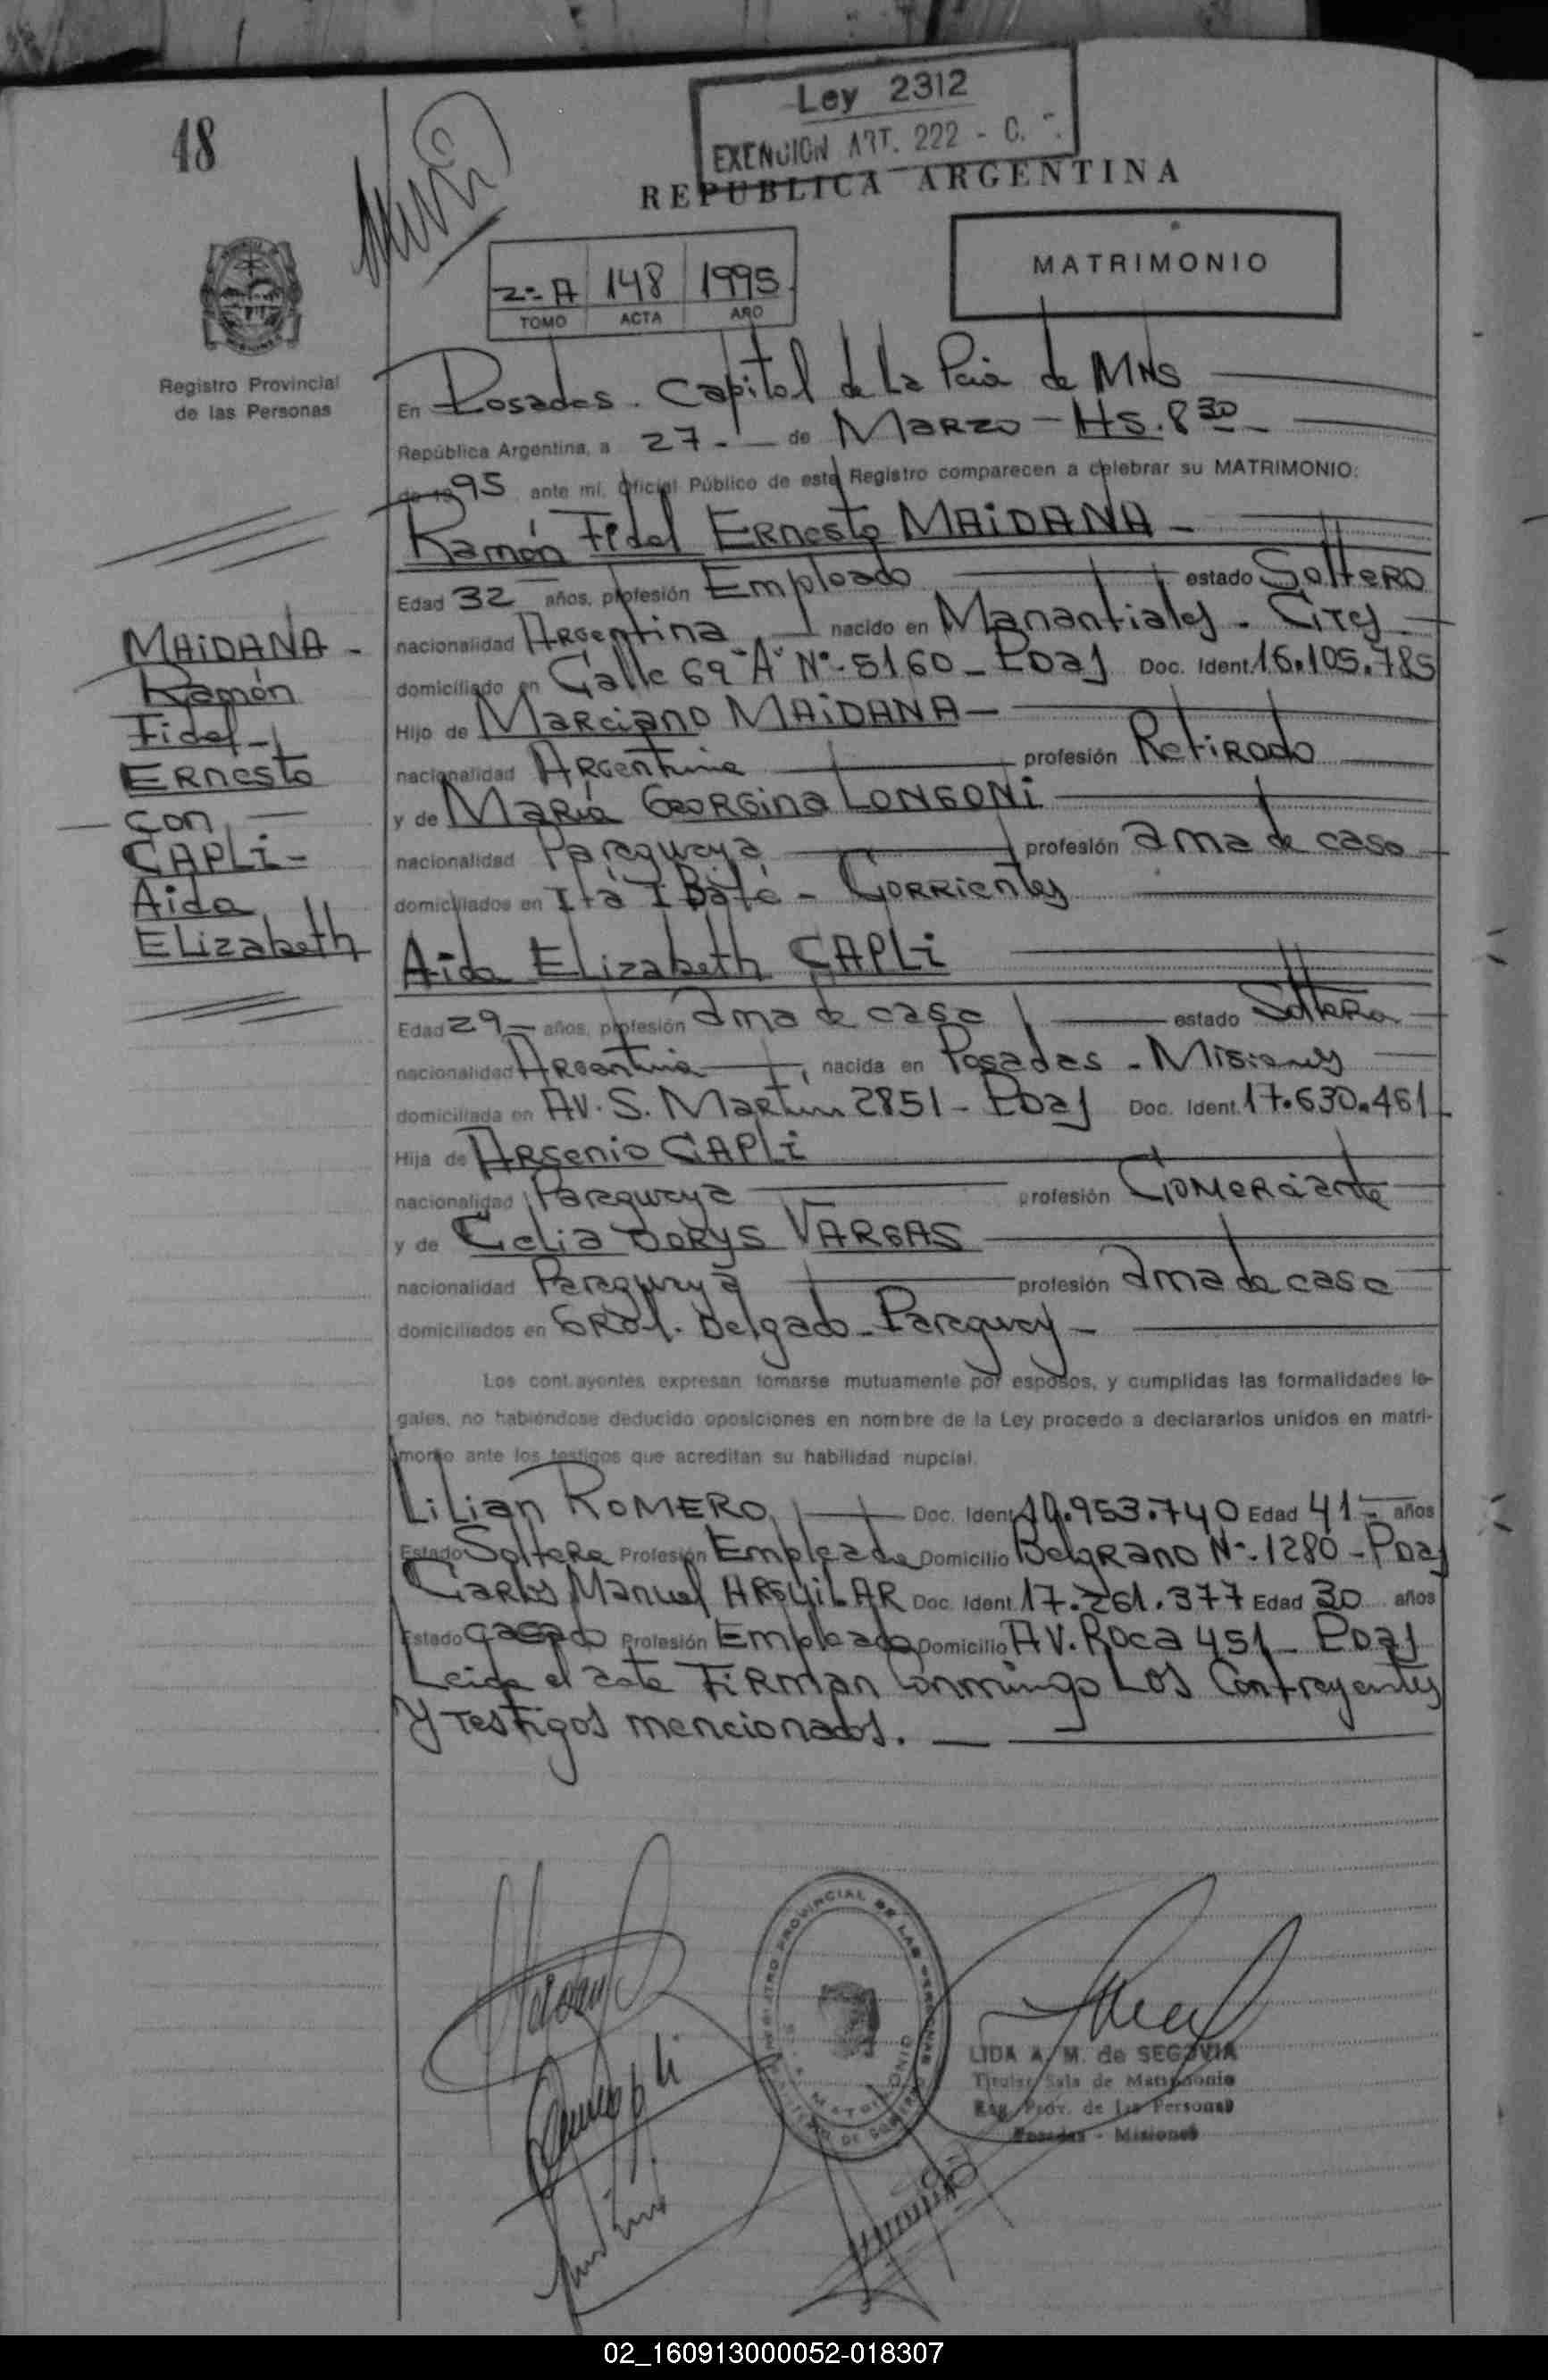 48
Ley 2312
EXENCION ART. 222 - C.
REPUBLICA ARGENTINA
MATRIMONIO
2º A 148 1995
TOMO ACTA AÑO
Registro Provincial
de las Personas
En Posadas. Capital de La Pcia de MNS
República Argentina, a 27 - de Marzo - HS. 8 30
de 1995 ante mí, Oficial Público de este Registro comparecen a celebrar su MATRIMONIO:
Ramón Fidel Ernesto MAIDANA -
Edad 32 años, profesión Empleado estado Soltero
nacionalidad Argentina nacido en Manantiales - Ctes
domiciliado en Calle 69 "A" Nº 5160 - Pdas Doc. Ident. 16.105.785
Hijo de Marciano MAIDANA -
nacionalidad Argentina profesión Retirado
y de María Georgina LONGONI
nacionalidad Paraguaya profesión ama de casa
domiciliados en Itá Ibaté - Corrientes
Aida Elizabeth CAPLI
Edad 29 - años, profesión ama de casa estado Soltera
nacionalidad Argentina, nacida en Posadas - Misiones
domiciliada en AV. S. Martín 2851 - Pdas Doc. Ident. 17.630.461
Hija de Arsenio CAPLI
nacionalidad Paraguaya profesión Comerciante
y de Celia DORYS VARGAS
nacionalidad Paraguaya profesión ama de casa
domiciliados en Gral. Delgado - Paraguay -
Los contrayentes expresan tomarse mutuamente por esposos, y cumplidas las formalidades le-
gales, no habiéndose deducido oposiciones en nombre de la Ley procedo a declararlos unidos en matri-
monio ante los testigos que acreditan su habilidad nupcial.
Lilian ROMERO, Doc. Ident. 10.953.740 Edad 41 - años
Estado Soltera Profesión Empleada Domicilio Belgrano Nº 1280 - Pdas
Carlos Manuel ARGUILAR Doc. Ident. 17.261.377 Edad 30 años
Estado casado Profesión Empleado Domicilio AV. Roca 451 - Pdas
Leida el acta FIRMAN conmigo Los Contrayentes
Y Testigos mencionados. -
MAIDANA -
Ramón
Fidel -
Ernesto
con
CAPLI -
Aida
Elizabeth
REGISTRO PROVINCIAL DE LAS PERSONAS
MATRIMONIO
LIDA A. M. de SEGOVIA
Titular Sala de Matrimonio
Reg. Prov. de las Personas
Posadas - Misiones
02_160913000052-018307